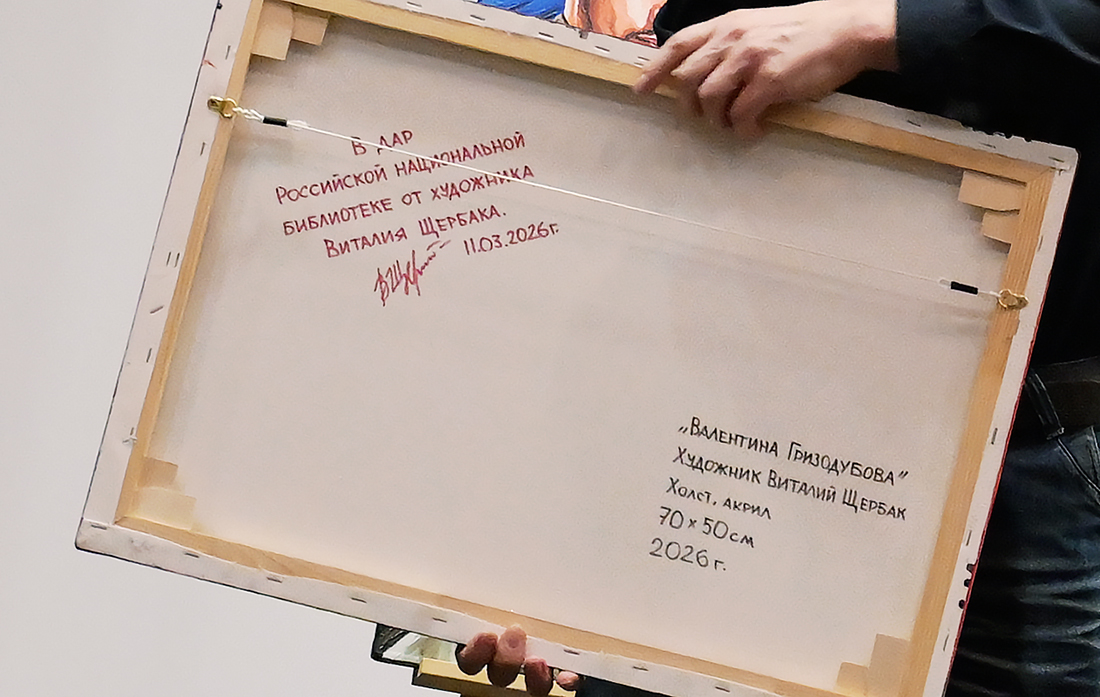 В ДАР
РОССИЙСКОЙ НАЦИОНАЛЬНОЙ
БИБЛИОТЕКЕ ОТ ХУДОЖНИКА
ВИТАЛИЯ ЩЕРБАКА.
11.03.2026г.
„ВАЛЕНТИНА ГРИЗОДУБОВА"
ХУДОЖНИК ВИТАЛИЙ ЩЕРБАК
ХОЛСТ, АКРИЛ
70 × 50 см
2026 г.